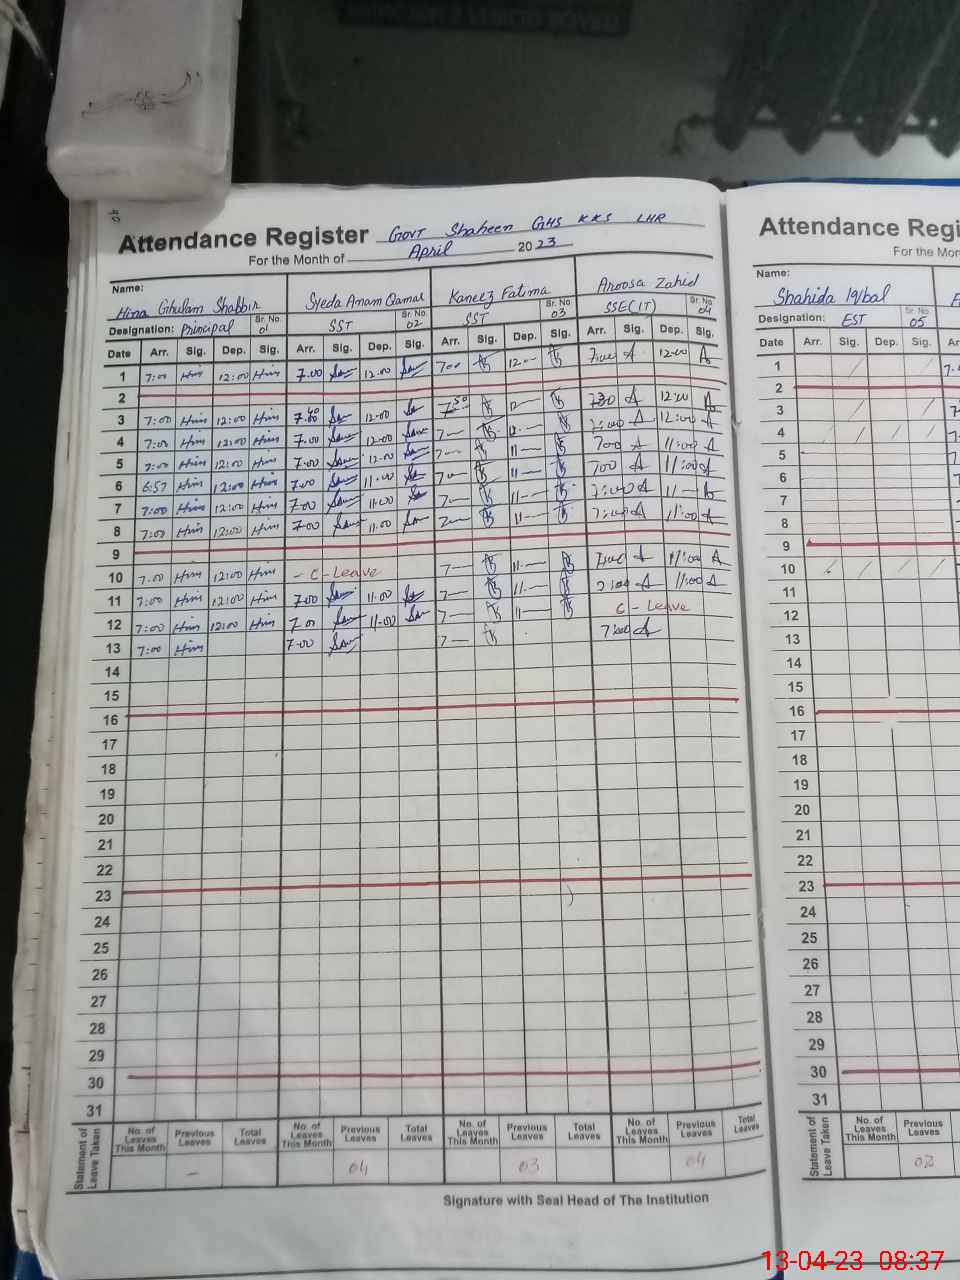 Attendance Register Govt Shaheen GHS KKS LHR
For the Month of April 2023
Name: Hina Ghulam Shabbir Syeda Anam Qamar Kaneez Fatima Aroosa Zahid
Designation: Principal Sr. No. 01 SST Sr. No. 02 SST Sr. No. 03 SSE(IT) Sr. No. 04
Date Arr. Sig. Dep. Sig. Arr. Sig. Dep. Sig. Arr. Sig. Dep. Sig. Arr. Sig. Dep. Sig.
1 7:00 Him 12:00 Him 7.00 12.00 700 12-- 7:00 A 12:00 A
2
3 7:00 Him 12:00 Him 12.00 A 12:00
4 7:00 Him 12:00 Him 7.00 12.00 7-- 12-- 7:00 A 12:00 A
5 7:00 Him 12:00 Him 7.00 12.00 7-- 11-- 700 A 11:00 A
6 6:57 Him 12:00 Him 7.00 11.00 11-- 700 A 11:00 A
7 7:00 Him 12:00 Him 7.00 11.00 7-- 11-- 7:00 A 11--
8 7:00 Him 12:00 Him 7.00 11.00 7-- 11-- 7:00 A 11:00 A
9
10 7:00 Him 12:00 Him - C-Leave 7-- 11-- 7:00 A 11:00 A
11 7:00 Him 12:00 Him 7.00 11.00 7-- 11-- 7:00 A 11:00 A
12 7:00 Him 12:00 Him 7.00 11.00 7-- 11-- C-Leave
13 7:00 Him 7.00 7-- 7:00 A
14
15
16
17
18
19
20
21
22
23
24
25
26
27
28
29
30
31
Statement of Leave Taken No. of Leaves This Month Previous Leaves Total Leaves No. of Leaves This Month Previous Leaves Total Leaves No. of Leaves This Month Previous Leaves Total Leaves No. of Leaves This Month Previous Leaves Total Leaves
- 04 03 04
Signature with Seal Head of The Institution
Attendance Regi
For the Mon
Name: Shahida Iqbal
Designation: EST Sr. No. 05
Date Arr. Sig. Dep. Sig. Ar
1
2
3
4
5
6
7
8
9
10
11
12
13
14
15
16
17
18
19
20
21
22
23
24
25
26
27
28
29
30
31
Statement of Leave Taken No. of Leaves This Month Previous Leaves
02
13-04-23 08:37